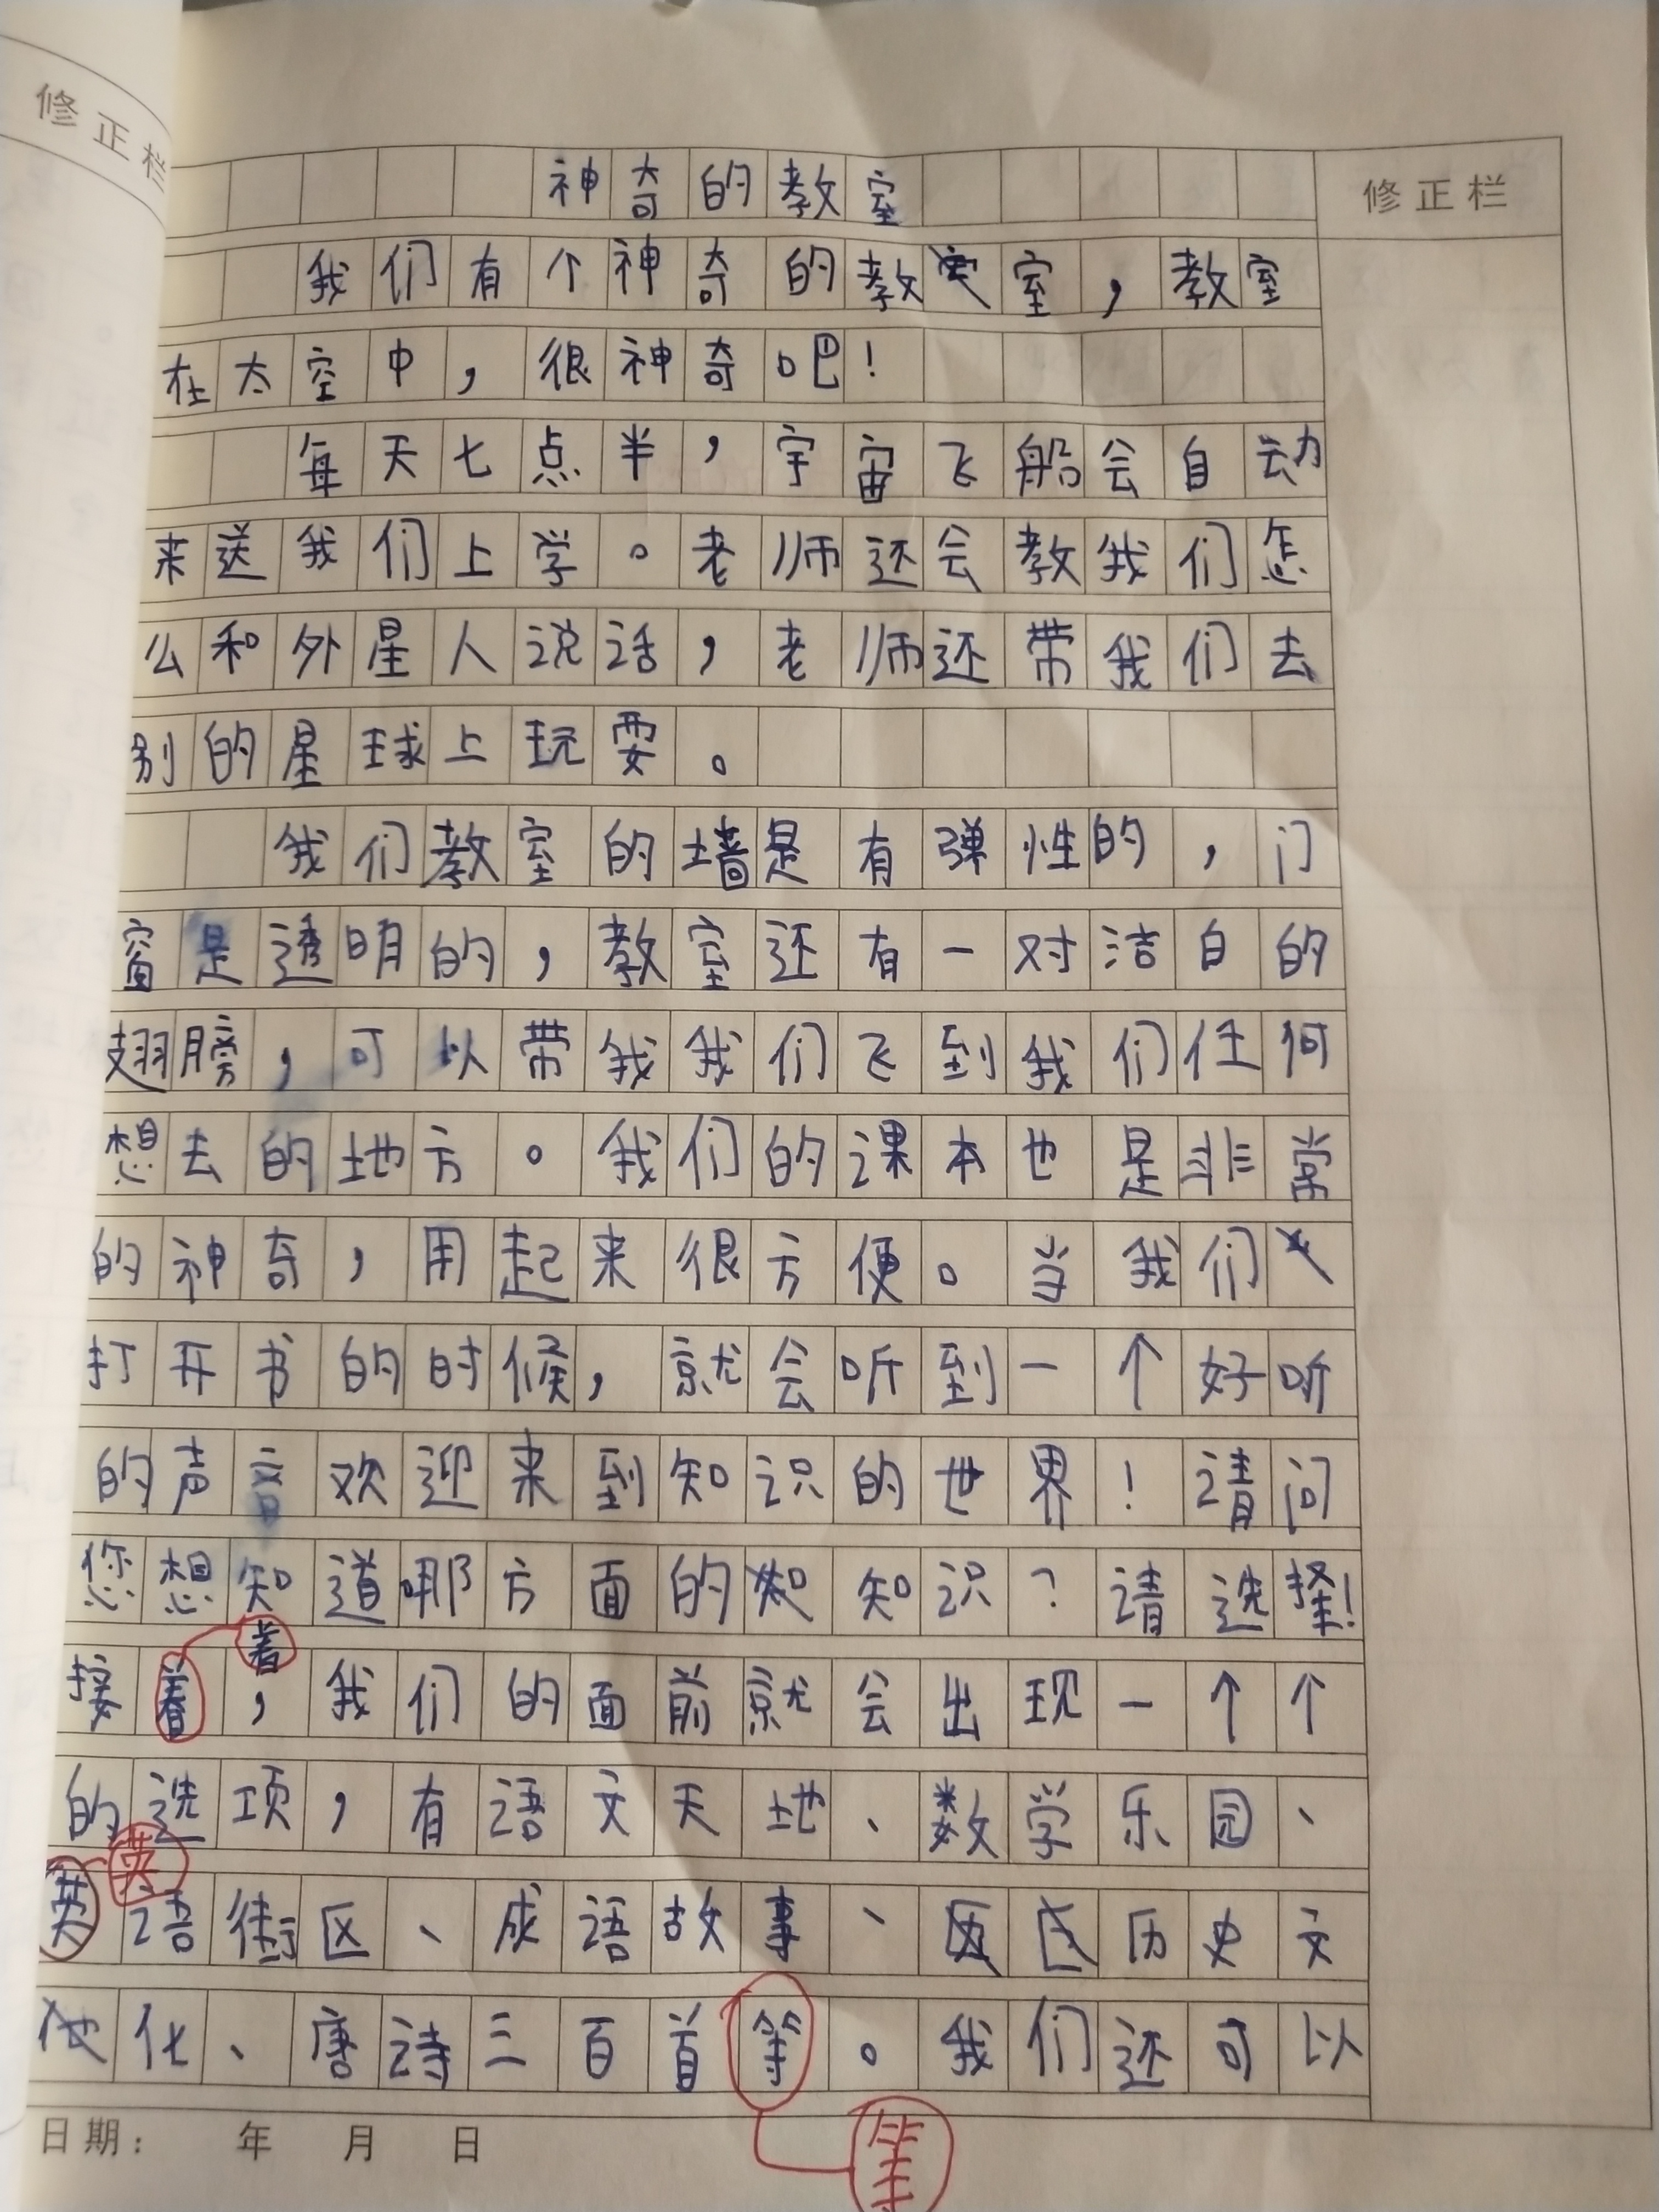 修正栏
神奇的教室
修正栏
我们有个神奇的教室，教室
在太空中，很神奇吧！
每天七点半，宇宙飞船会自动
来送我们上学。老师还会教我们怎
么和外星人说话，老师还带我们去
别的星球上玩耍。
我们教室的墙是有弹性的，门
窗是透明的，教室还有一对洁白的
翅膀，可以带我我们飞到我们任何
想去的地方。我们的课本也是非常
的神奇，用起来很方便。当我们
打开书的时候，就会听到一个好听
的声音欢迎来到知识的世界！请问
您想知道哪方面的知识？请选择！
着
接着，我们的面前就会出现一个个
的选项，有语文天地、数学乐园、
英
英语街区、成语故事、历史文
化、唐诗三百首等。我们还可以
等
日期： 年 月 日